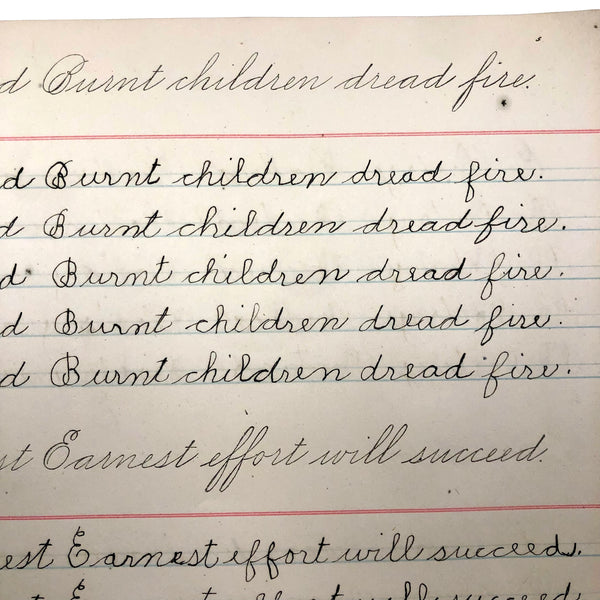 d Burnt children dread fire.
d Burnt children dread fire.
d Burnt children dread fire.
d Burnt children dread fire.
d Burnt children dread fire.
d Burnt children dread fire.
st Earnest effort will succeed.
est Earnest effort will succeed.